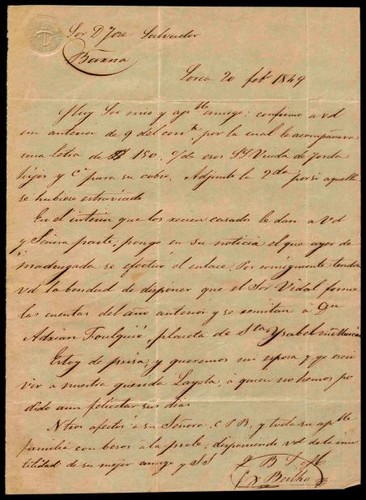 Sor Dn Jose Salvador
Barna
Lorca 20 febo 1849
Muy Sor mio y apble amigo: confirmo a Vd
mi anterior de 9 del corrte, por la cual le acompañaba
una letra de 150. 9/ de esos SS Viuda de
hijos y Ca para su cobro. Adjunta la 2da por si aquella
se hubiese extraviado
En el interin que los recien casados le dan a Vd
y Señora parte, pongo en su noticia el que ayer de
madrugada se efectuó el enlace. Por consiguiente tendrá
Vd la bondad de disponer que el Sor Vidal forme
las cuentas del año anterior y se remitan a Dn
Adrian Foulquié, plazeta de Sta Ysabel en Murcia
Estoy de prisa; y queremos mi esposa y yo escri
vir a nuestra querida Layeta, a quien no hemos po
dido aun felicitar su dia.
Ntros afectos a su Señora C.P.B. y toda su apble
familia con besos a la prole; disponiendo Vd de la inu
tilidad de su mejor amigo y S S